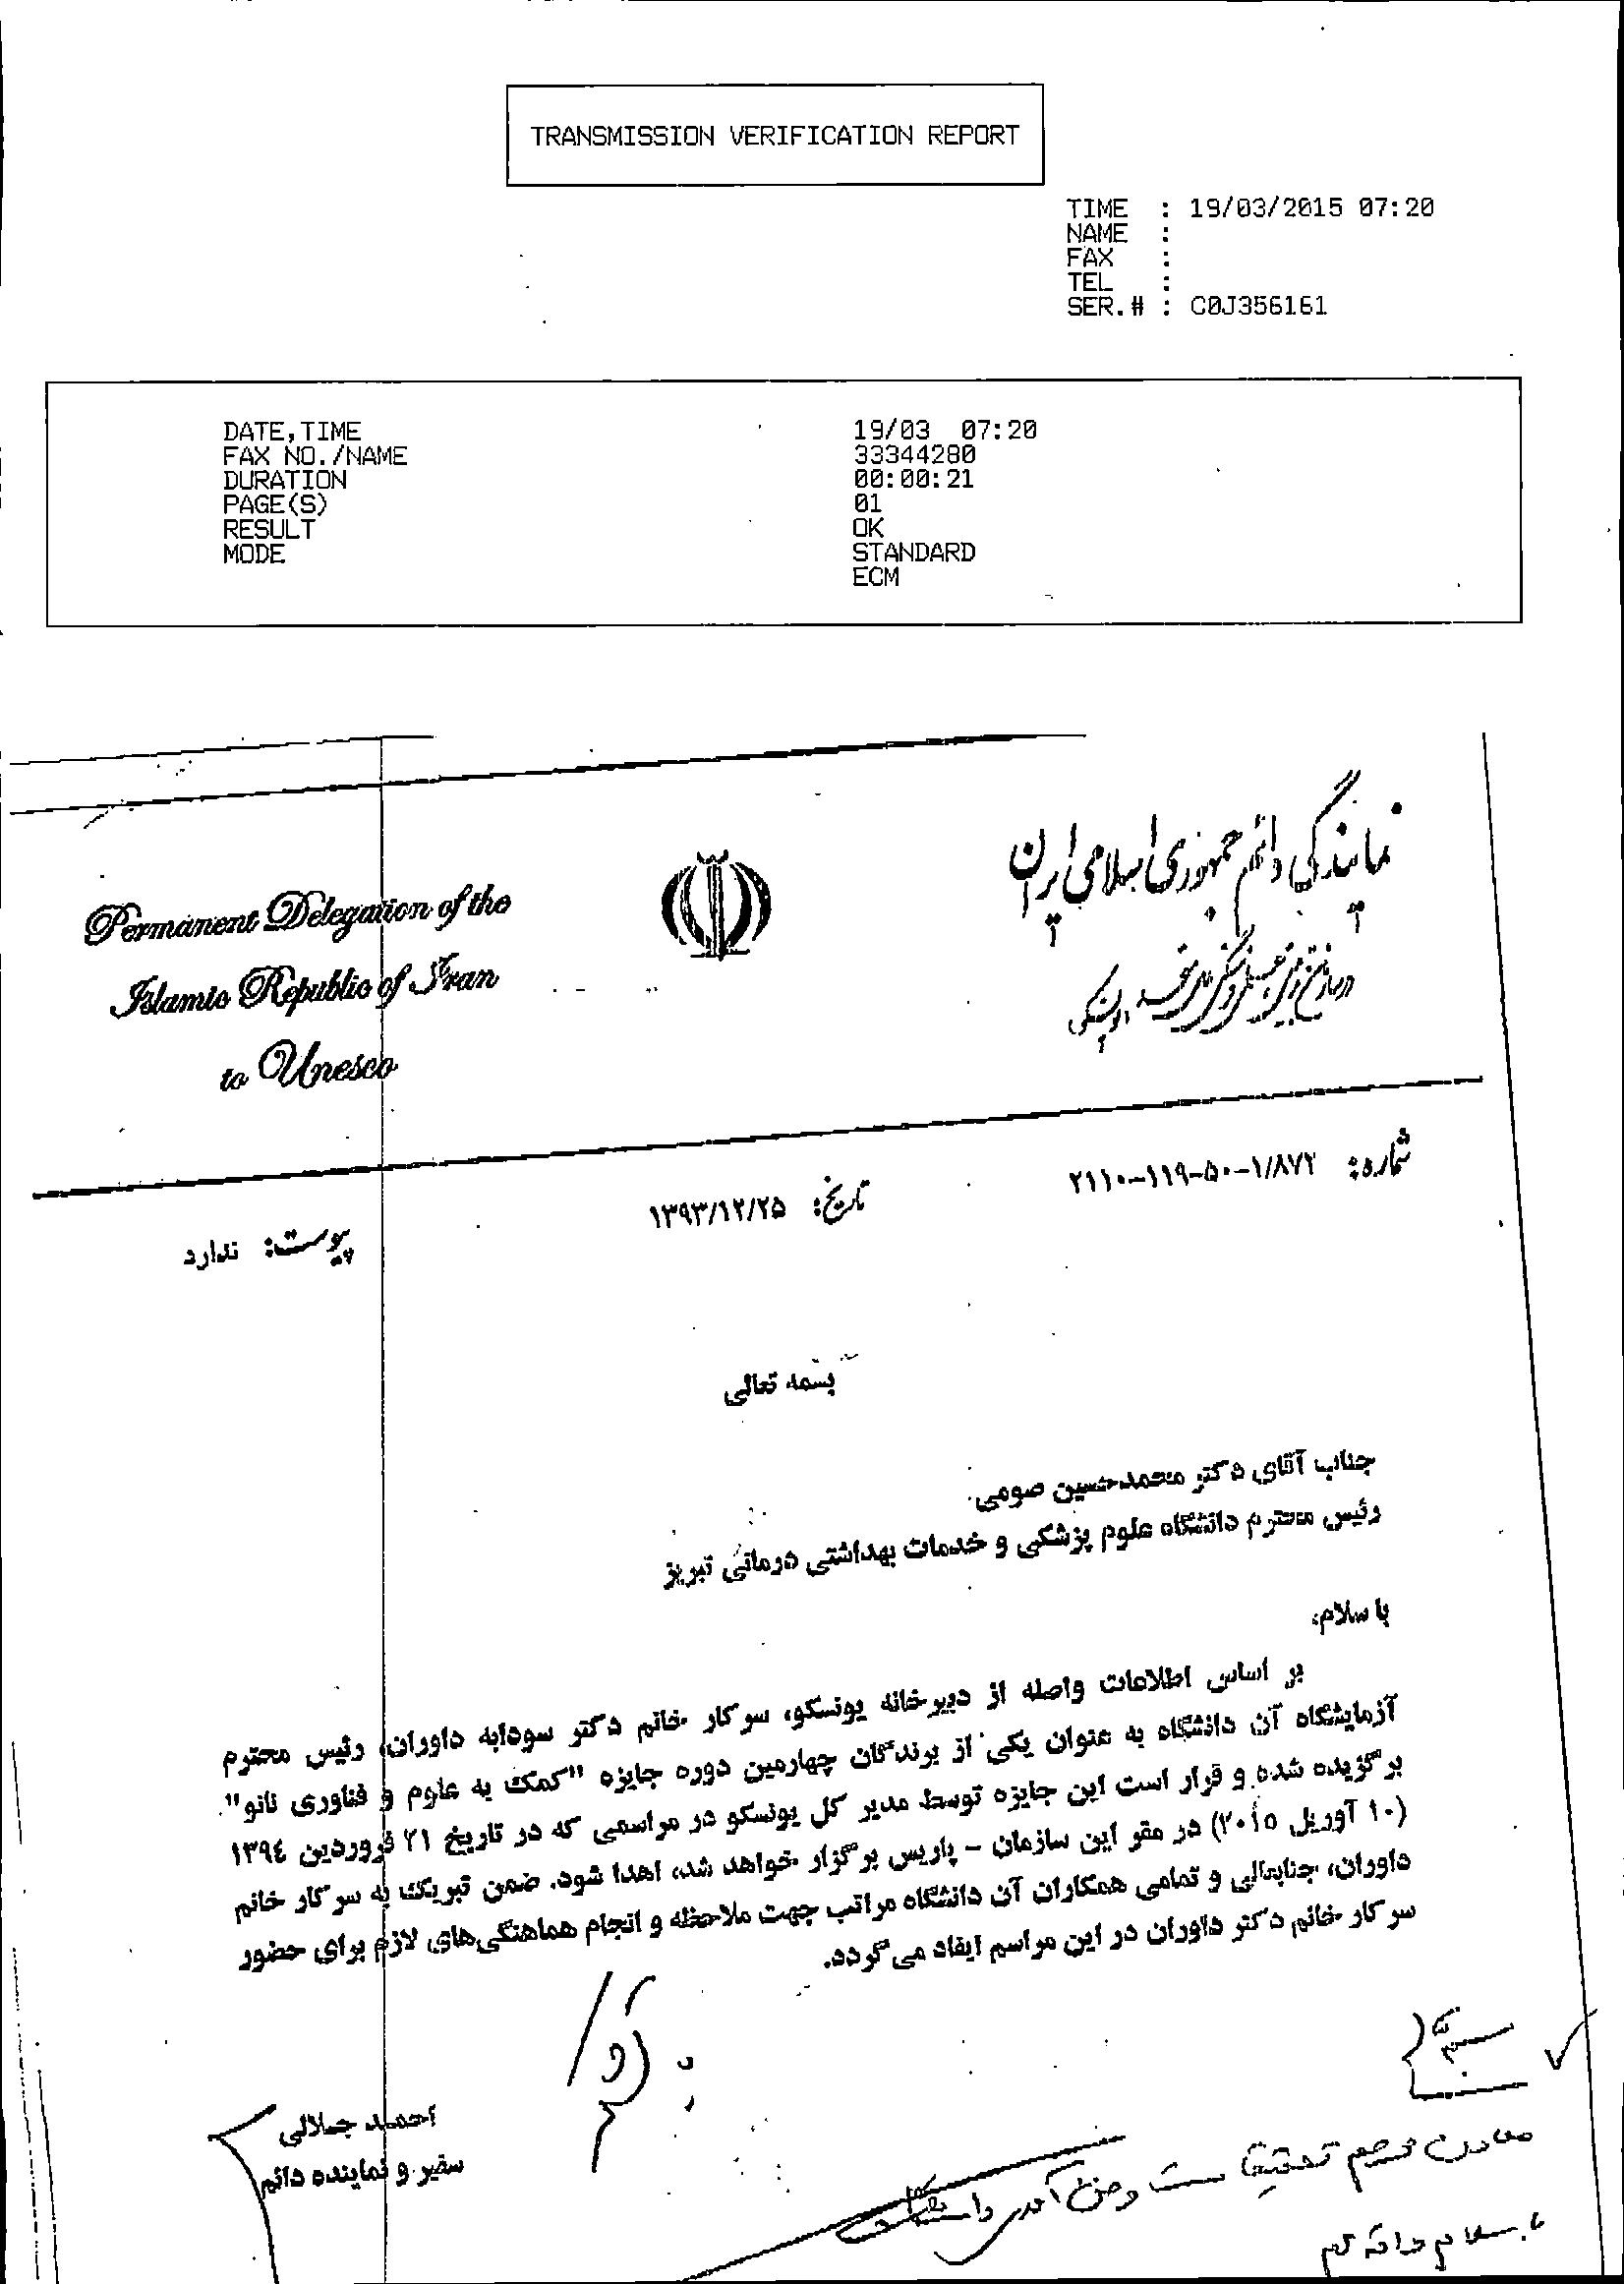 TRANSMISSION VERIFICATION REPORT
TIME : 19/03/2015 07:20
NAME :
FAX :
TEL :
SER.# : C0J356161
DATE,TIME 19/03 07:20
FAX NO./NAME 33344280
DURATION 00:00:21
PAGE(S) 01
RESULT OK
MODE STANDARD
ECM
نمایندگی دائم جمهوری اسلامی ایران
Permanent Delegation of the
Islamic Republic of Iran
to Unesco
شماره: ۲۱۱۰-۱۱۹-۵۰-۱/۸۷۲
تاریخ: ۱۳۹۳/۱۲/۲۵
پیوست: ندارد
بسمه تعالی
جناب آقای دکتر محمدحسین صومی
رئیس محترم دانشگاه علوم پزشکی و خدمات بهداشتی درمانی تبریز
با سلام،
بر اساس اطلاعات واصله از دبیرخانه یونسکو، سرکار خانم دکتر سودابه داوران، رئیس محترم
آزمایشگاه آن دانشگاه به عنوان یکی از برندگان چهارمین دوره جایزه "کمک به علوم و فناوری نانو"
برگزیده شده و قرار است این جایزه توسط مدیر کل یونسکو در مراسمی که در تاریخ ۲۱ فروردین ۱۳۹۴
(۱۰ آوریل ۲۰۱۵) در مقر این سازمان - پاریس برگزار خواهد شد، اهدا شود. ضمن تبریک به سرکار خانم
داوران، جنابعالی و تمامی همکاران آن دانشگاه مراتب جهت ملاحظه و انجام هماهنگی‌های لازم برای حضور
سرکار خانم دکتر داوران در این مراسم ایفاد می‌گردد.
احمد جلالی
سفیر و نماینده دائم
معاونت محترم تحقیقات و فن آوری دانشگاه
با سلام